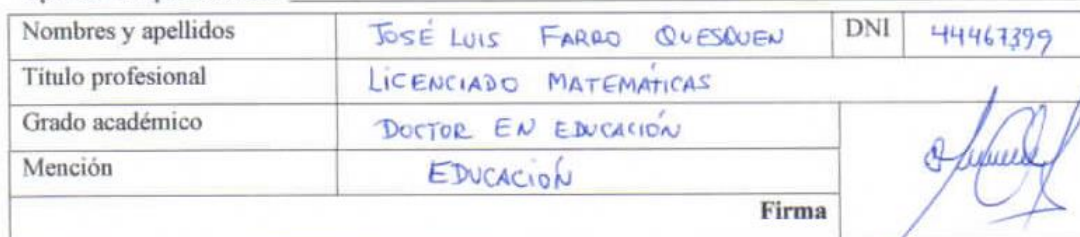 Nombres y apellidos JOSÉ LUIS FARRO QUESQUEN DNI 44467399
Título profesional LICENCIADO MATEMÁTICAS
Grado académico DOCTOR EN EDUCACIÓN
Mención EDUCACIÓN
Firma